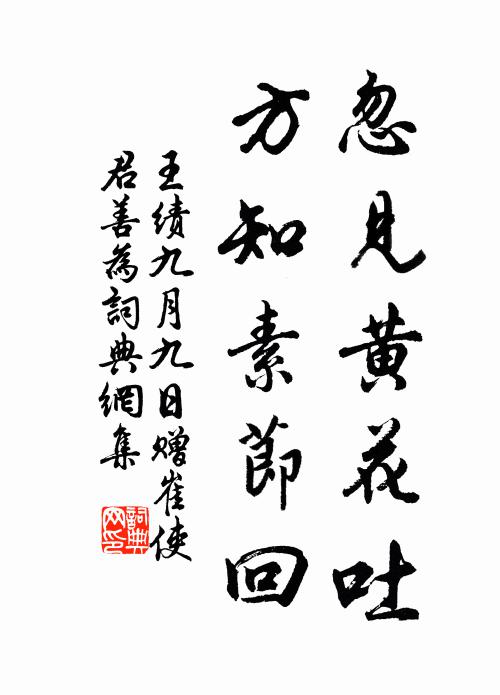 忽見黄花吐
方知素節回
王績九月九日贈崔使
君善為詞典網集
詞典
网印